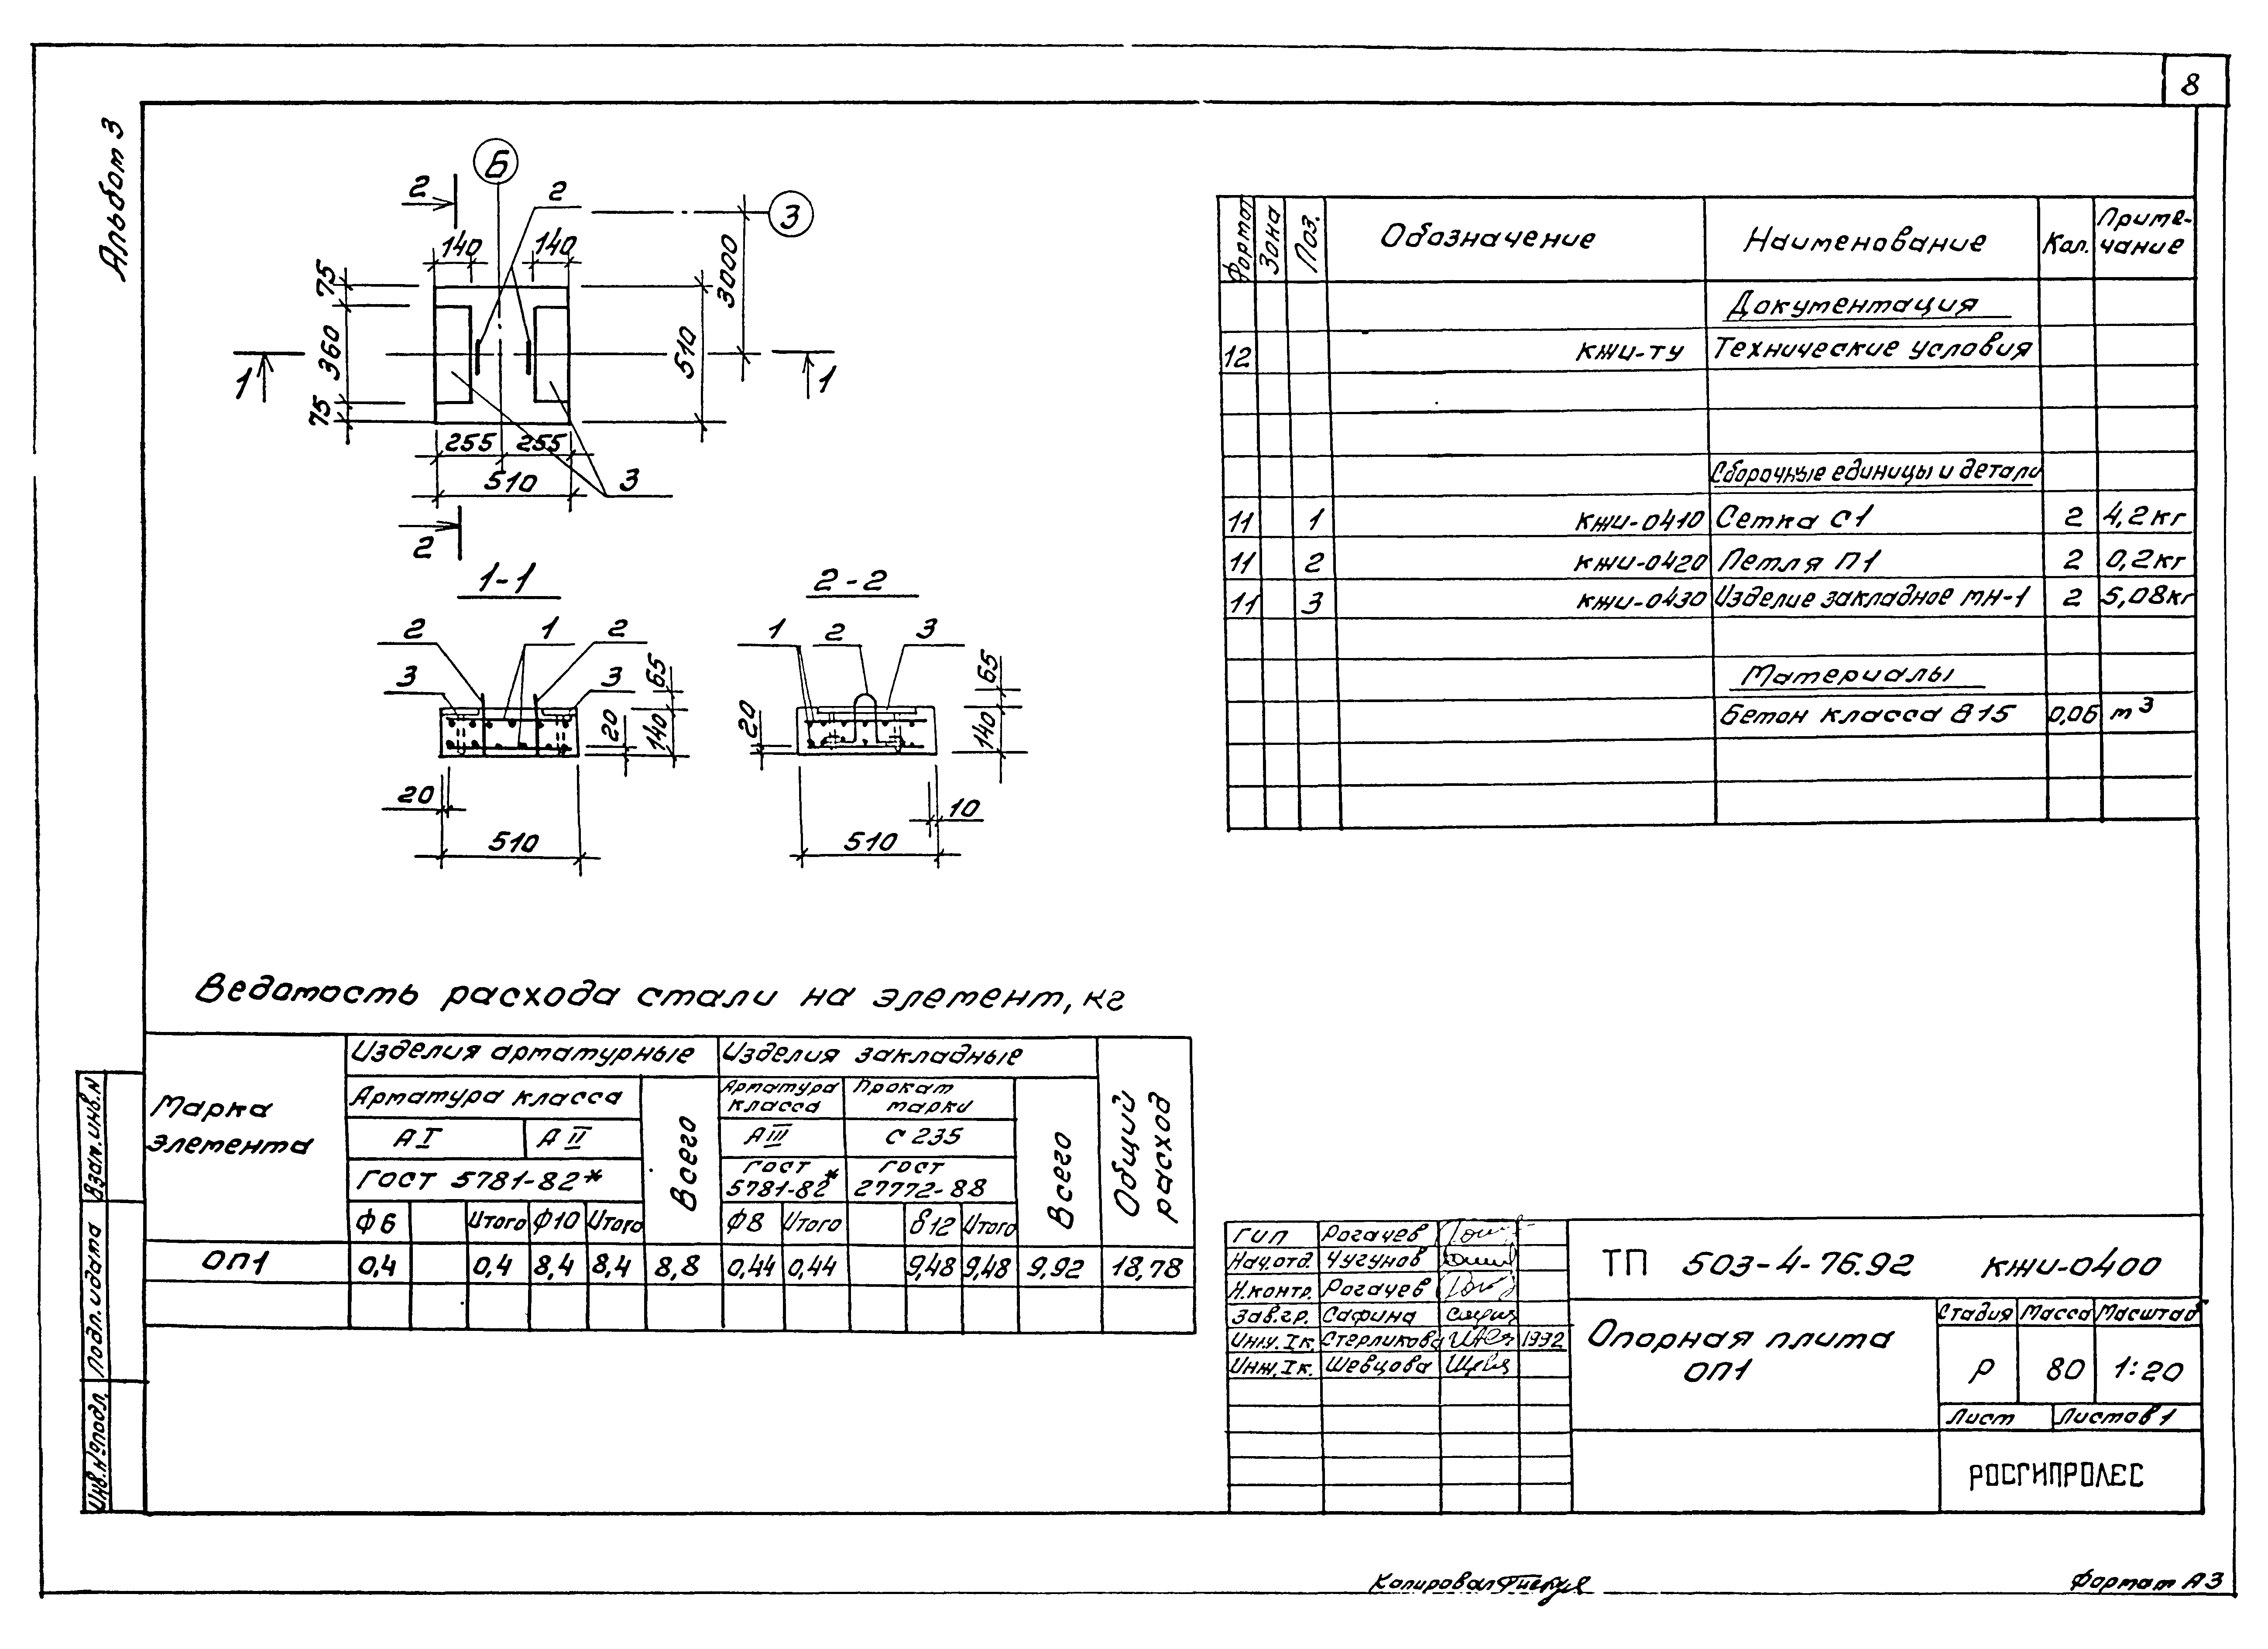 8
Альбом 3
Б
2 2 3
140 140
75 3000
360 510
1 1
75
255 255
510 3
2
1-1 2-2
2 1 2 1 2 3
3 3 65 65
20 140 20 140
20 10
510 510
Формат Зона Поз. Обозначение Наименование Кол. Приме-
чание
Документация
12 КЖИ-ТУ Технические условия
Сборочные единицы и детали
11 1 КЖИ-0410 Сетка С1 2 4,2кг
11 2 КЖИ-0420 Петля П1 2 0,2кг
11 3 КЖИ-0430 Изделие закладное МН-1 2 5,08кг
Материалы
Бетон класса В15 0,06 м³
Ведомость расхода стали на элемент, кг
Марка
элемента
Изделия арматурные Изделия закладные Общий
расход
Арматура класса Всего Арматура
класса Прокат
марки Всего
АI АII АIII С 235
ГОСТ 5781-82* ГОСТ
5781-82* ГОСТ
27772-88
Ф6 Итого Ф10 Итого Ф8 Итого δ12 Итого
ОП1 0,4 0,4 8,4 8,4 8,8 0,44 0,44 9,48 9,48 9,92 18,78
Взам.инв.N
Подп. и дата
Инв.№подл.
ГИП Рогачев
Нач.отд. Чугунов
Н.контр. Рогачев
Зав.гр. Сафина
Инж.Iк. Стерликова 1992
Инж.Iк. Шевцова
ТП 503-4-76.92 КЖИ-0400
Опорная плита
ОП1
Стадия Масса Масштаб
Р 80 1:20
Лист Листов 1
РОСГИПРОЛЕС
Копировал
Формат А3